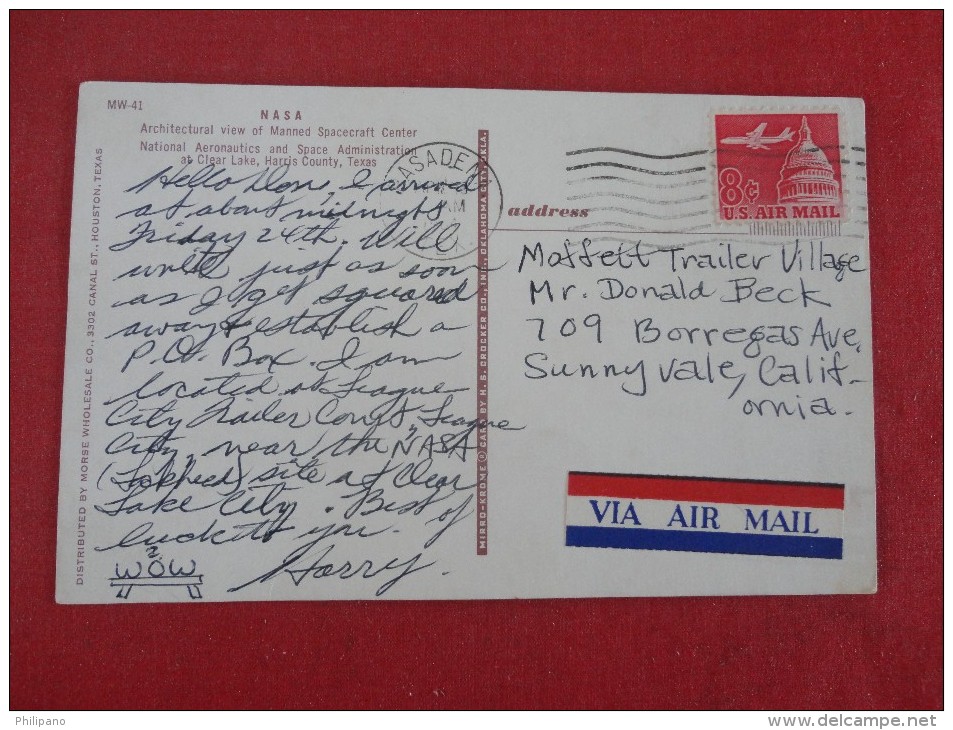 MW-41
NASA
Architectural view of Manned Spacecraft Center
National Aeronautics and Space Administration
at Clear Lake, Harris County, Texas
Hello Don, I arrived
at about midnight
Friday 24th. Will
write just as soon
as I get squared
away & establish a
P.O. Box. I am
located at League
City Trailer Court, League
City, near the NASA
(Lockheed) site at Clear
Lake City. Best of
luck to you.
Harry.
WOW
DISTRIBUTED BY MORSE WHOLESALE CO., 3302 CANAL ST., HOUSTON, TEXAS
MIRRO-KROME ® CARD BY H. S. CROCKER CO., INC., OKLAHOMA CITY, OKLA.
PASADENA
AM
8¢
U.S. AIR MAIL
address
Moffett Trailer Village
Mr. Donald Beck
709 Borregas Ave,
Sunnyvale, Calif-
ornia.
VIA AIR MAIL
Philipano
www.delcampe.net